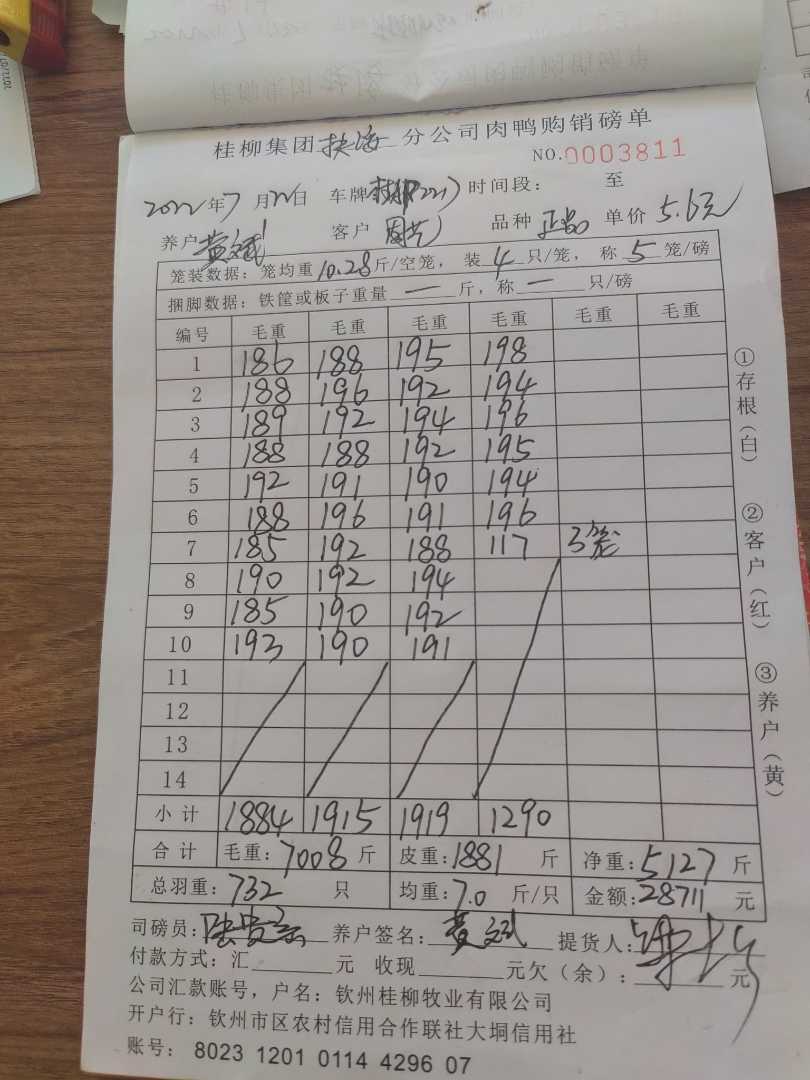 桂柳集团 扶海 分公司肉鸭购销磅单
NO.0003811
2022年7月22日 车牌 时间段： 至
养户 黄文斌 客户 周艺 品种 正品 单价 5.6元
笼装数据：笼均重10.28斤/空笼，装4只/笼，称5笼/磅
捆脚数据：铁筐或板子重量 一 斤，称 一 只/磅
编号 毛重 毛重 毛重 毛重 毛重 毛重
1 186 188 195 198
2 188 196 192 194
3 189 192 194 196
4 188 188 192 195
5 192 191 190 194
6 188 196 191 196
7 185 192 188 117 3笼
8 190 192 194
9 185 190 192
10 193 190 191
11
12
13
14
小计 1884 1915 1919 1290
合计 毛重：7008斤 皮重：1881斤 净重：5127斤
总羽重：732只 均重：7.0斤/只 金额：28711元
司磅员： 养户签名：黄文斌 提货人：
付款方式：汇 元 收现 元欠（余）： 元
公司汇款账号，户名：钦州桂柳牧业有限公司
开户行：钦州市区农村信用合作联社大垌信用社
账号： 8023 1201 0114 4296 07
①存根（白）
②客户（红）
③养户（黄）